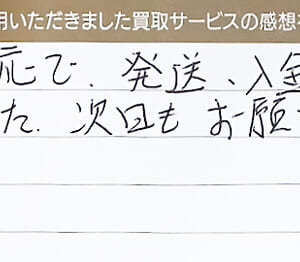 用いただきました買取サービスの感想
応で、発送、入金
た。次回もお願